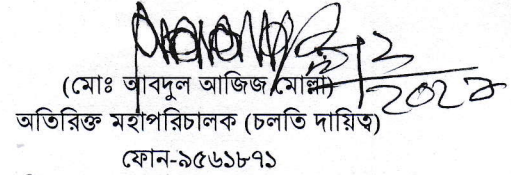 (মোঃ আবদুল আজিজ মোল্লা)
অতিরিক্ত মহাপরিচালক (চলতি দায়িত্ব)
ফোন-৯৫৬১৮৭১